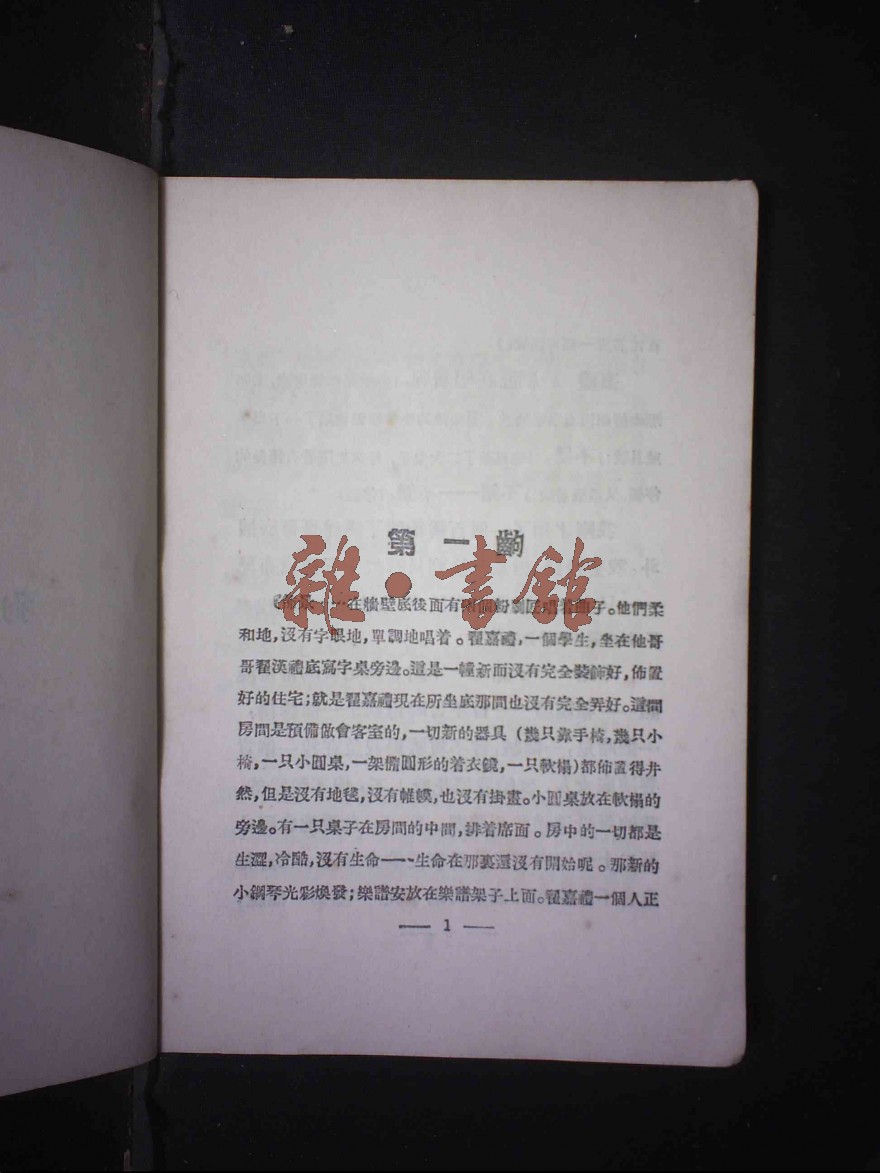 第一齣
雜·書館
在牆壁底後面有兩個粉刷匠唱着曲子。他們柔
和地,沒有字眼地,單調地唱着。翟嘉禮,一個學生,坐在他哥
哥翟漢禮底寫字桌旁邊。這是一幢新而沒有完全裝飾好,佈置
好的住宅;就是翟嘉禮現在所坐底那間也沒有完全弄好。這間
房間是預備做會客室的,一切新的器具(幾只靠手椅,幾只小
椅,一只小圓桌,一架橢圓形的着衣鏡,一只軟榻)都佈置得井
然,但是沒有地毯,沒有帷幙,也沒有掛畫。小圓桌放在軟榻的
旁邊。有一只桌子在房間的中間,排着席面。房中的一切都是
生澀,冷酷,沒有生命——生命在那裏還沒有開始呢。那新的
小鋼琴光彩煥發;樂譜安放在樂譜架子上面。翟嘉禮一個人正
— 1 —